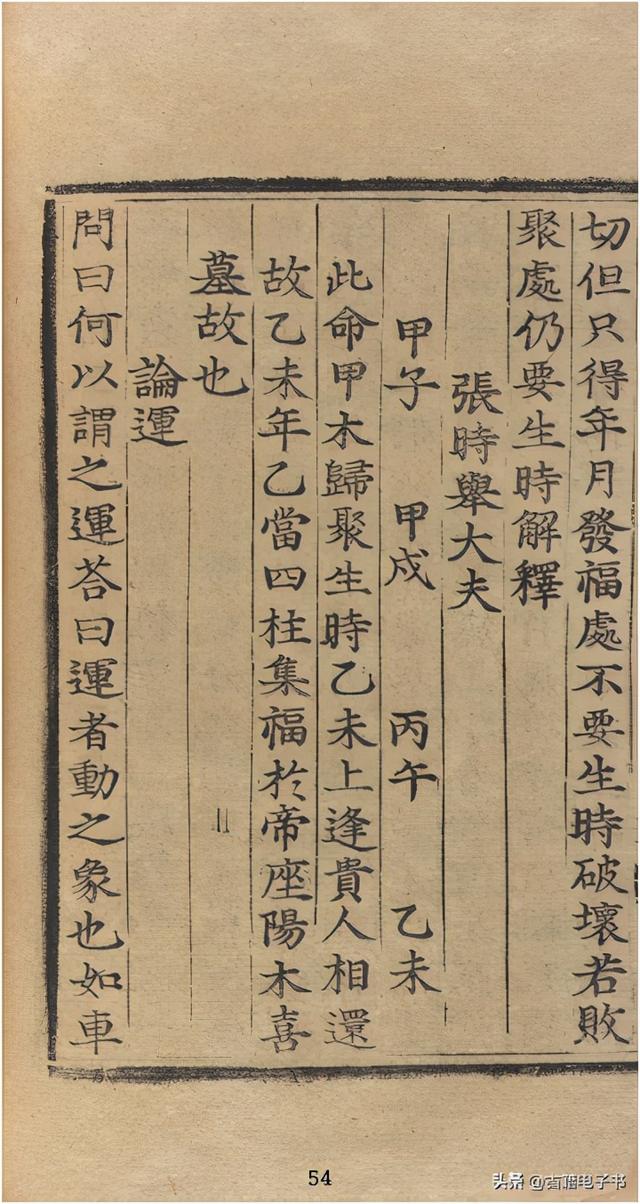 切但只得年月發福處不要生時破壞若敗
聚處仍要生時解釋
張時舉大夫
甲子 甲戌 丙午 乙未
此命甲木歸聚生時乙未上逢貴人相還
故乙未年乙當四柱集福於帝座陽木喜
墓故也
論運
問曰何以謂之運荅曰運者動之象也如車
54
头条 @古籍电子书